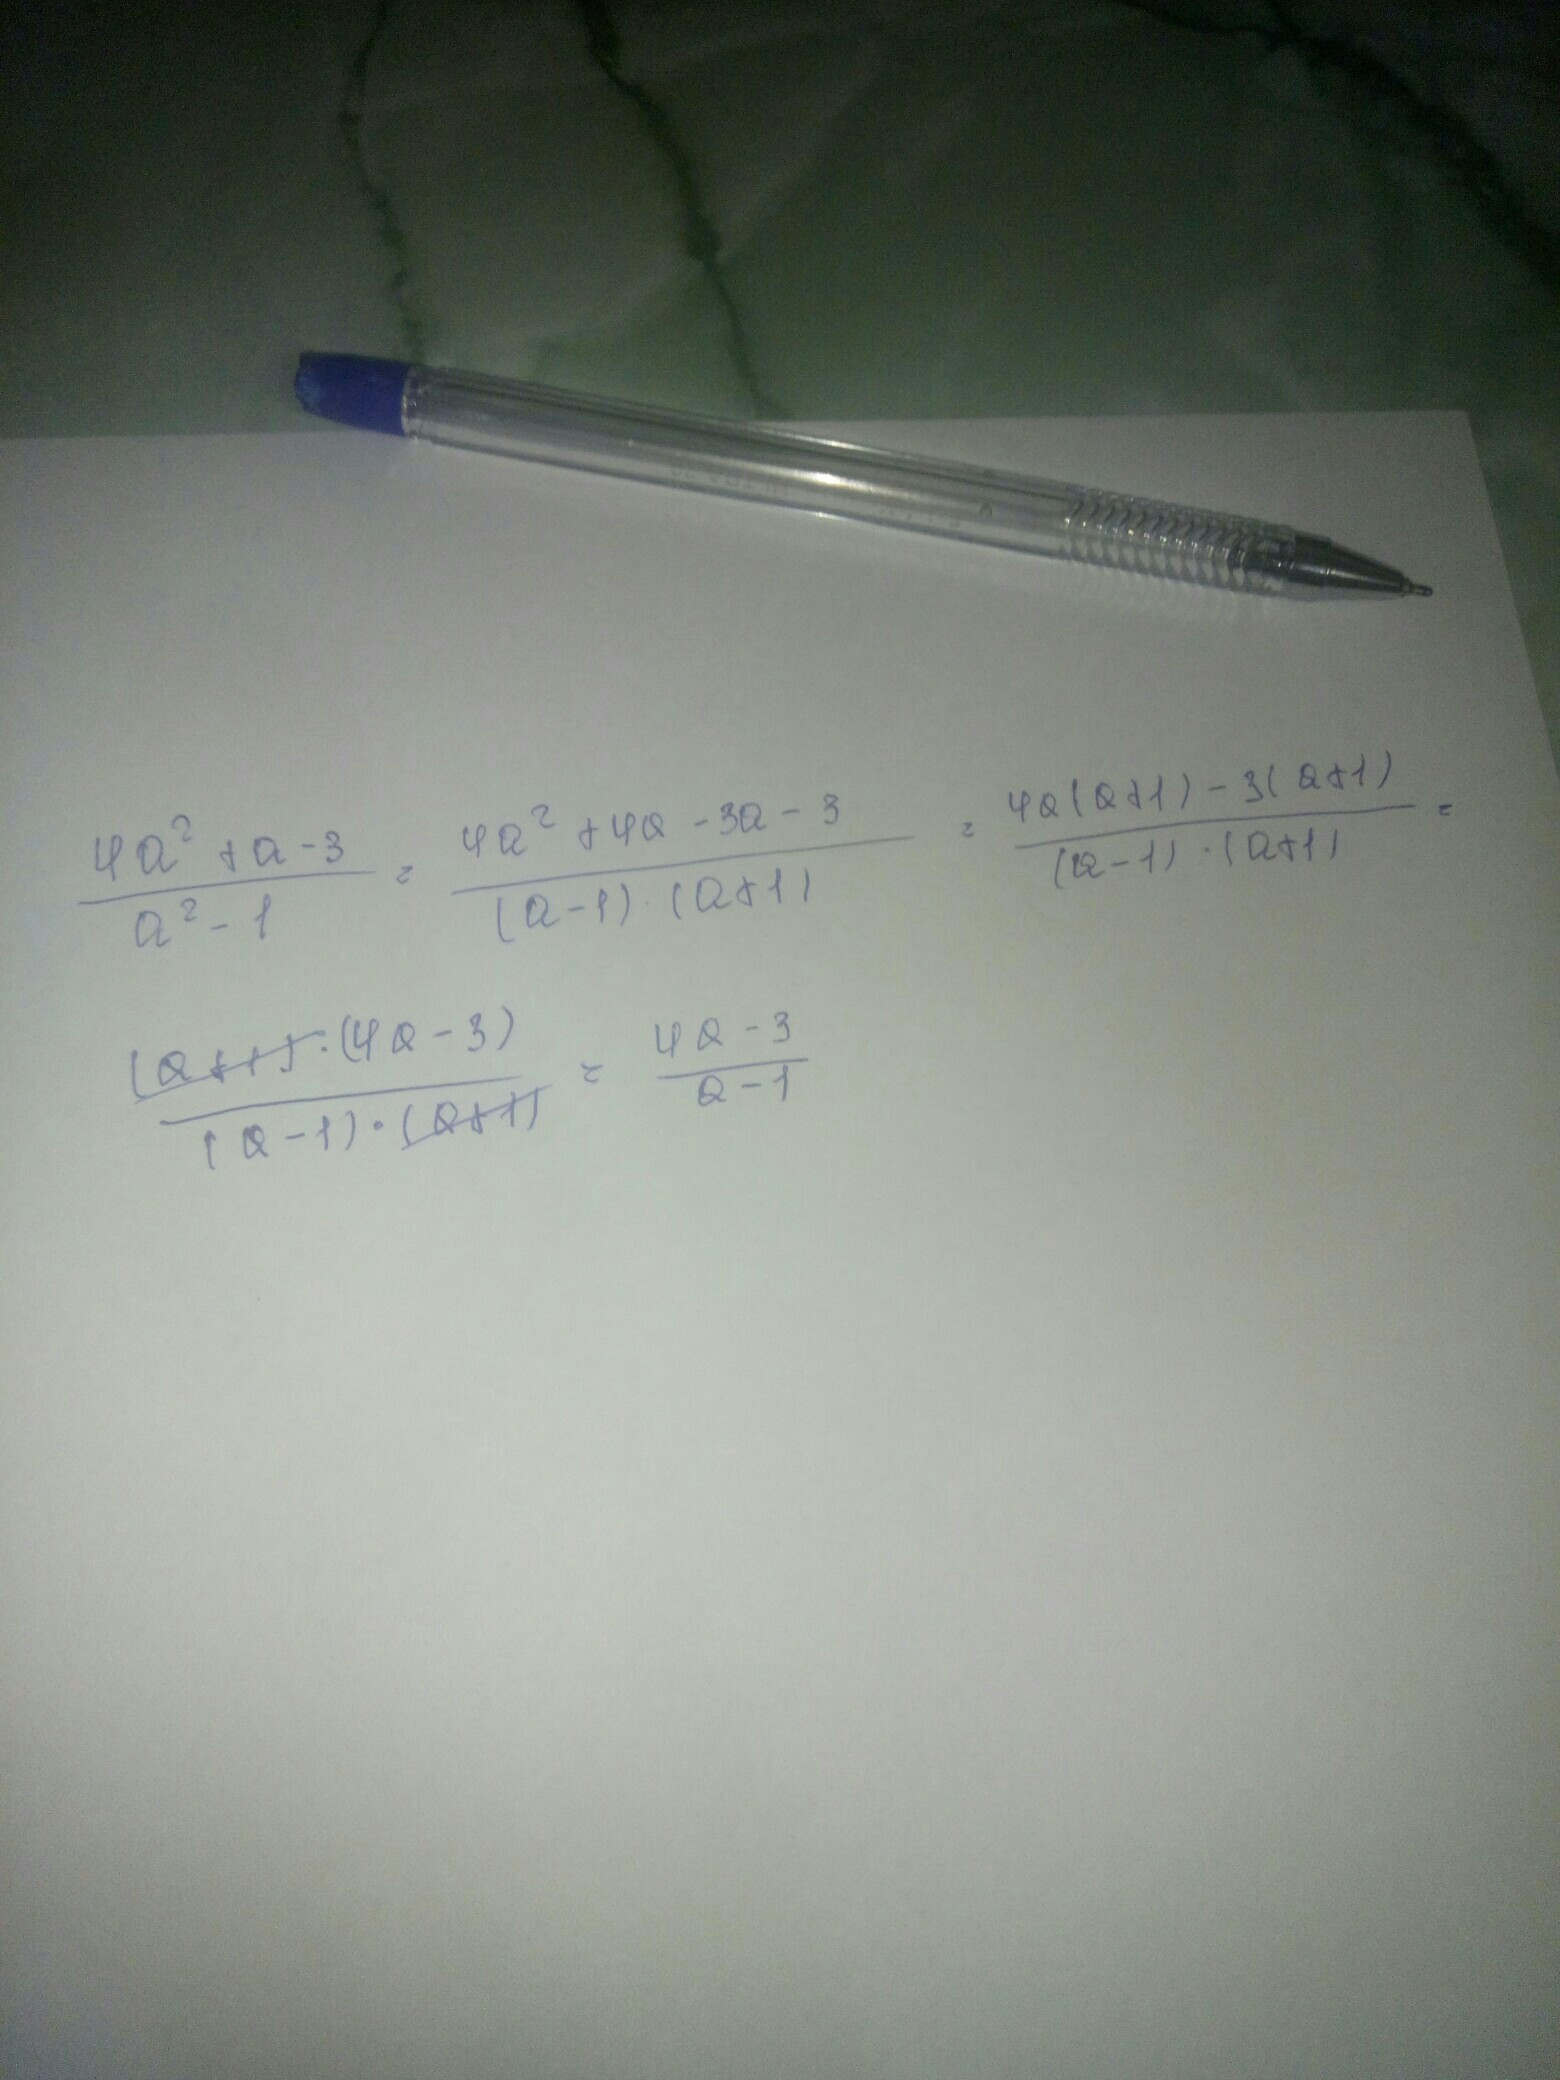 (4a² + a - 3)/(a² - 1) = (4a² + 4a - 3a - 3)/((a-1)·(a+1)) = (4a(a+1) - 3(a+1))/((a-1)·(a+1)) =
((a+1)·(4a-3))/((a-1)·(a+1)) = (4a-3)/(a-1)